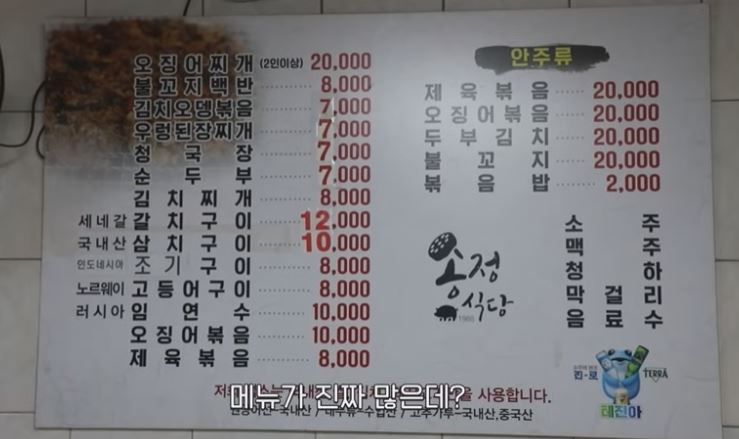 오징어찌개 (2인이상) 20,000
불고지백반 8,000
김치오뎅볶음 7,000
우렁된장찌개 7,000
청국장 7,000
순두부 7,000
김치찌개 8,000
세네갈 갈치구이 12,000
국내산 삼치구이 10,000
인도네시아 조기구이 8,000
노르웨이 고등어구이 8,000
러시아 임연수 10,000
오징어볶음 10,000
제육볶음 8,000
안주류
제육볶음 20,000
오징어볶음 20,000
두부김치 20,000
불고지 20,000
볶음밥 2,000
소주
맥주
청하
막걸리
음료수
송정
식당
1988
진-로
TERRA
테진아
메뉴가 진짜 많은데?
사용합니다.
국내산 / 고추가루-국내산,중국산